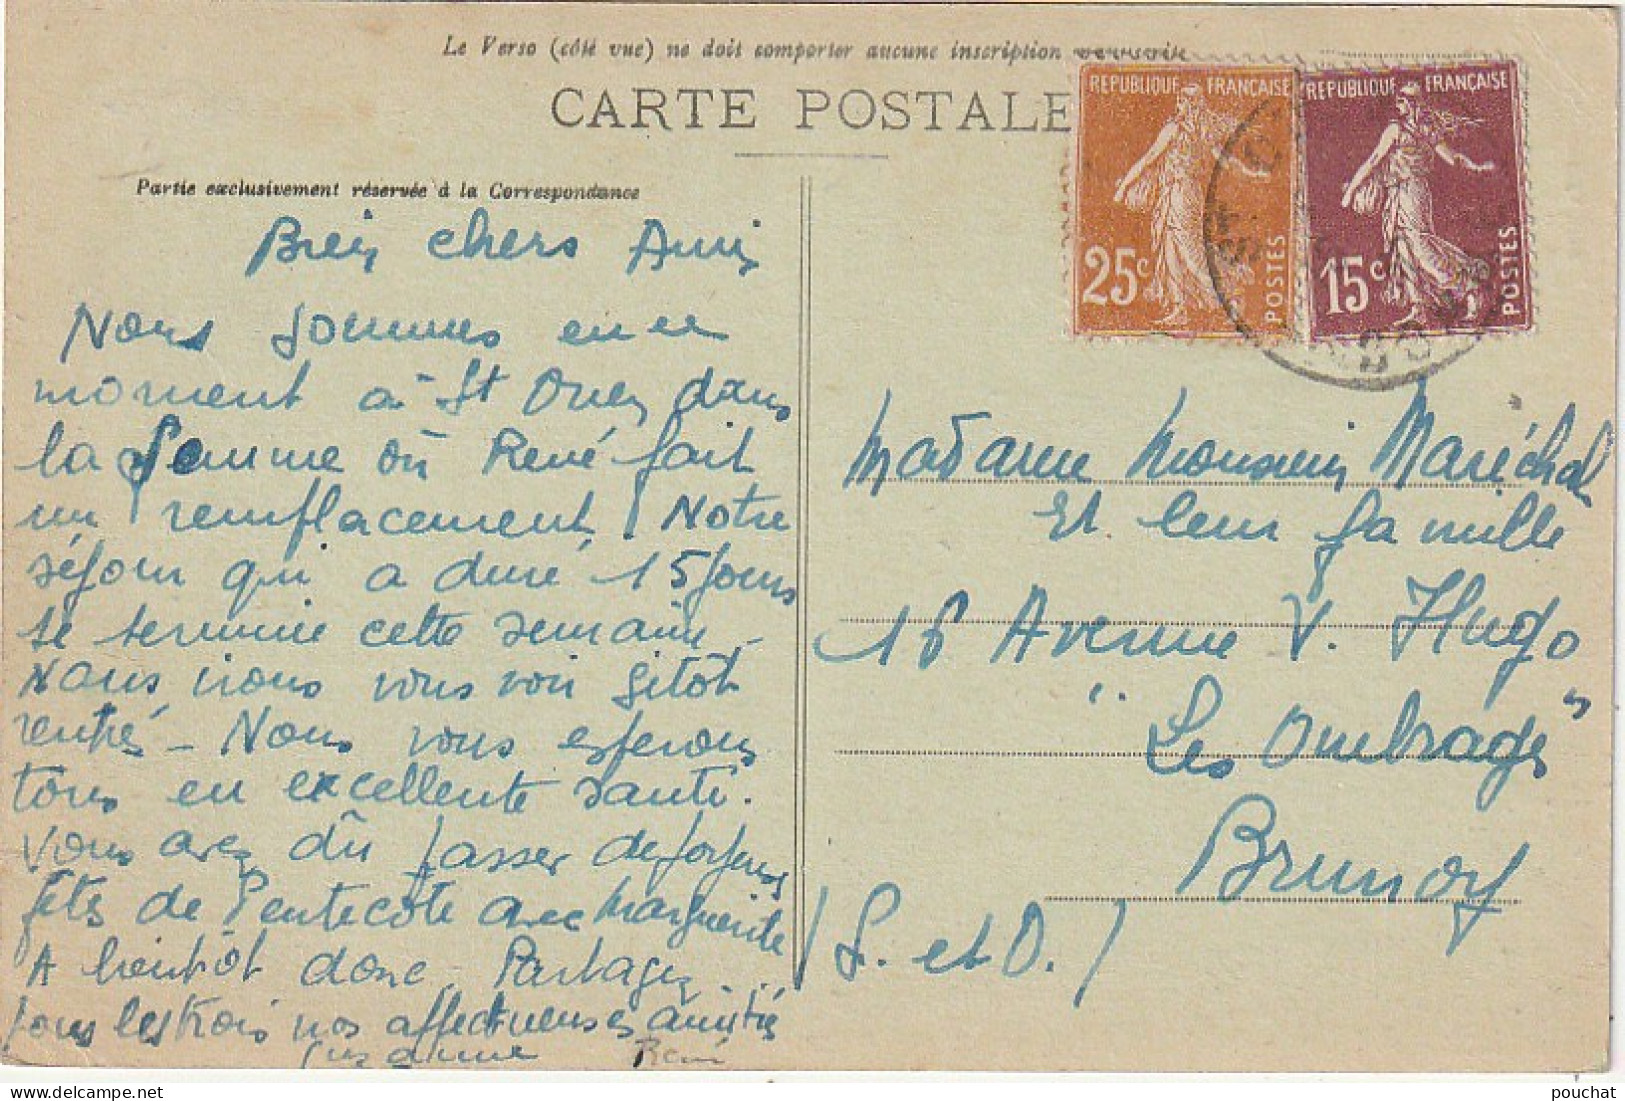 Le Verso (côté vue) ne doit comporter aucune inscription
CARTE POSTALE
REPUBLIQUE FRANÇAISE
25c
POSTES
REPUBLIQUE FRANÇAISE
15c
POSTES
Partie exclusivement réservée à la Correspondance
Bien chers Amis
Nous sommes en ce
moment à St Ouen dans
la Somme où René fait
un remplacement, Notre
séjour qui a duré 15 jours
se termine cette semaine -
Nous irons vous voir sitôt
rentrés - Nous vous espérons
tous en excellente santé.
Vous avez dû passer de joyeuses
fêtes de Pentecôte avec Marguerite
A bientôt donc. Partagez
tous les trois nos affectueuses amitiés
Suzanne René
Madame Monsieur Maréchal
Et leur famille
16 Avenue V. Hugo
"Les Ombrages"
Brunoy
(S. et O.)
pouchat